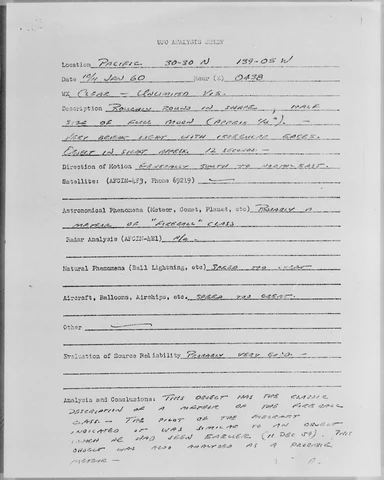 UFO ANALYSIS SHEET
Location PACIFIC 30-30 N 139-05 W
Date 10/11 JAN 60 Hour (Z) 0438
WX CLEAR - UNLIMITED VIS.
Description ROUGHLY ROUND IN SHAPE, HALF
SIZE OF FULL MOON (APPROX 1/4°). -
VERY BRIGHT LIGHT WITH IRREGULAR EDGES.
OBJECT IN SIGHT APPROX. 12 SECONDS -
Direction of Motion GENERALLY SOUTH TO NORTHEAST.
Satellite: (AFCIN-4F3, Phone 69219)
Astronomical Phenomena (Meteor, Comet, Planet, etc) PROBABLY A
METEOR OF "FIREBALL" CLASS
Radar Analysis (AFCIN-4E1) N/A
Natural Phenomena (Ball Lightning, etc) SPEED TOO GREAT
Aircraft, Balloons, Airships, etc. SPEED TOO GREAT.
Other
Evaluation of Source Reliability PROBABLY VERY GOOD. -
Analysis and Conclusions: THIS OBJECT HAS THE CLASSIC
DESCRIPTION OF A METEOR OF THE FIREBALL
CLASS - THE PILOT OF THE AIRCRAFT
INDICATED IT WAS SIMILAR TO AN OBJECT
WHICH HE HAD SEEN EARLIER (11 DEC 59). THIS
OBJECT WAS ALSO ANALYZED AS A PROBABLE
METEOR -